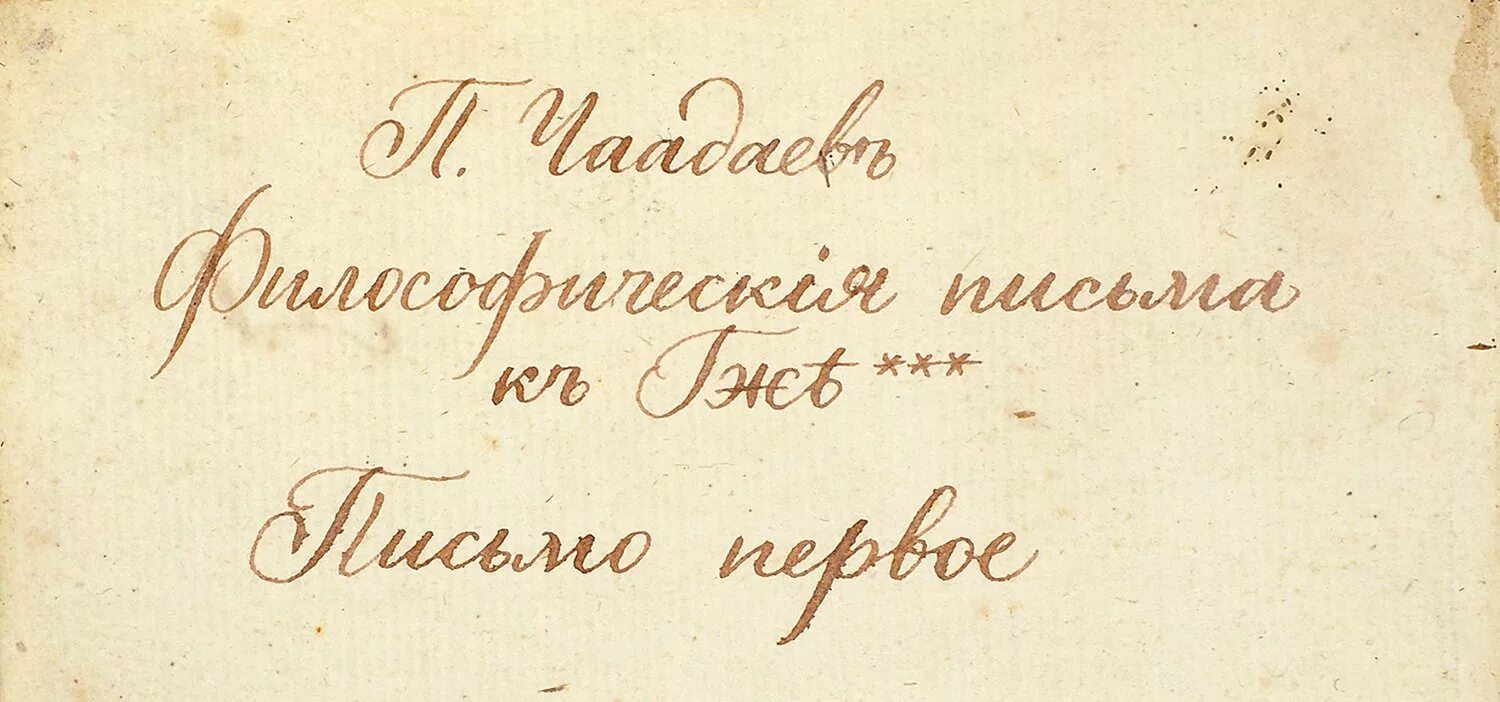 П. Чаадаевъ
Философическія письма
къ Гжѣ ***
Письмо первое